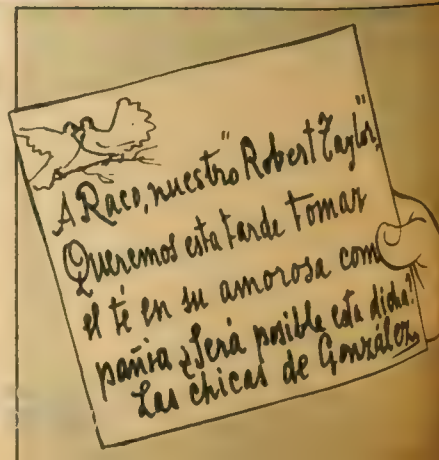 A Raco, nuestro "Robert Taylor",
Queremos esta tarde tomar
el té en su amorosa com
pañia ¿Será posible esta dicha?
Las chicas de González